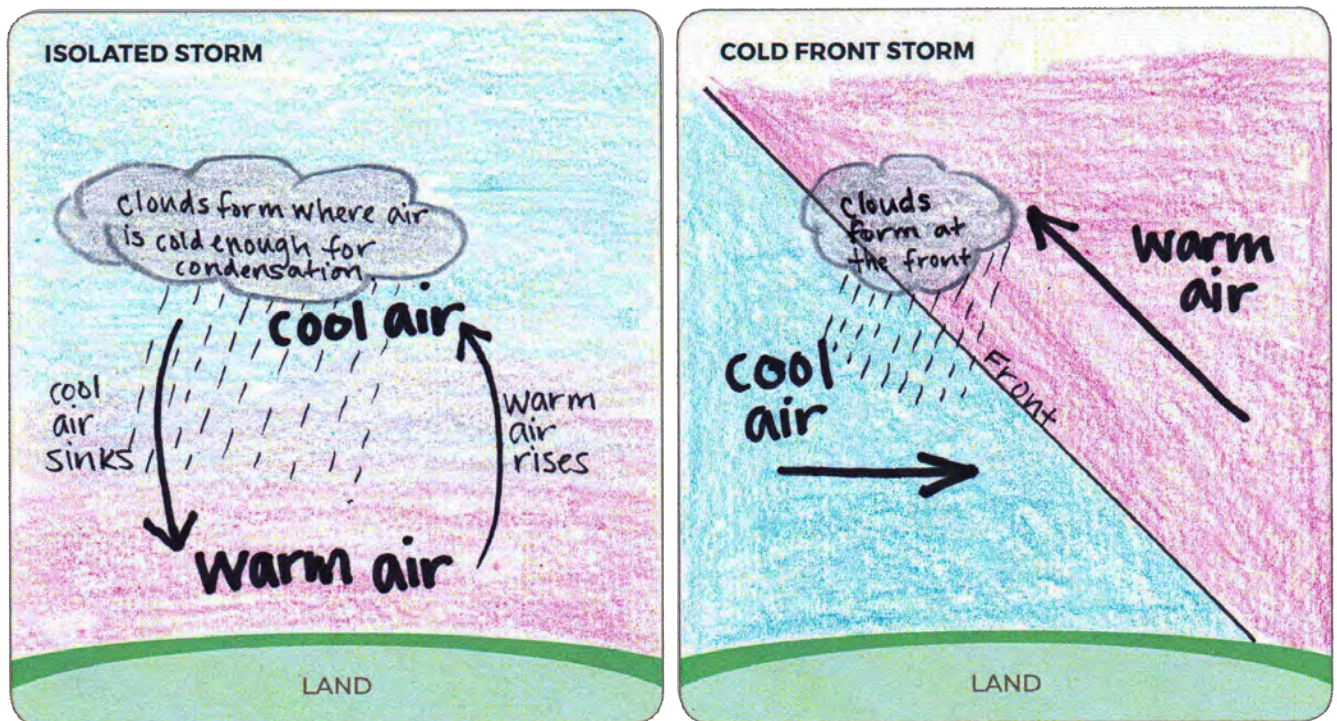 ISOLATED STORM
clouds form where air
is cold enough for
condensation.
cool air
cool
air
sinks
warm
air
rises
warm air
LAND
COLD FRONT STORM
clouds
form at
the front
warm
air
cool
air
Front
LAND